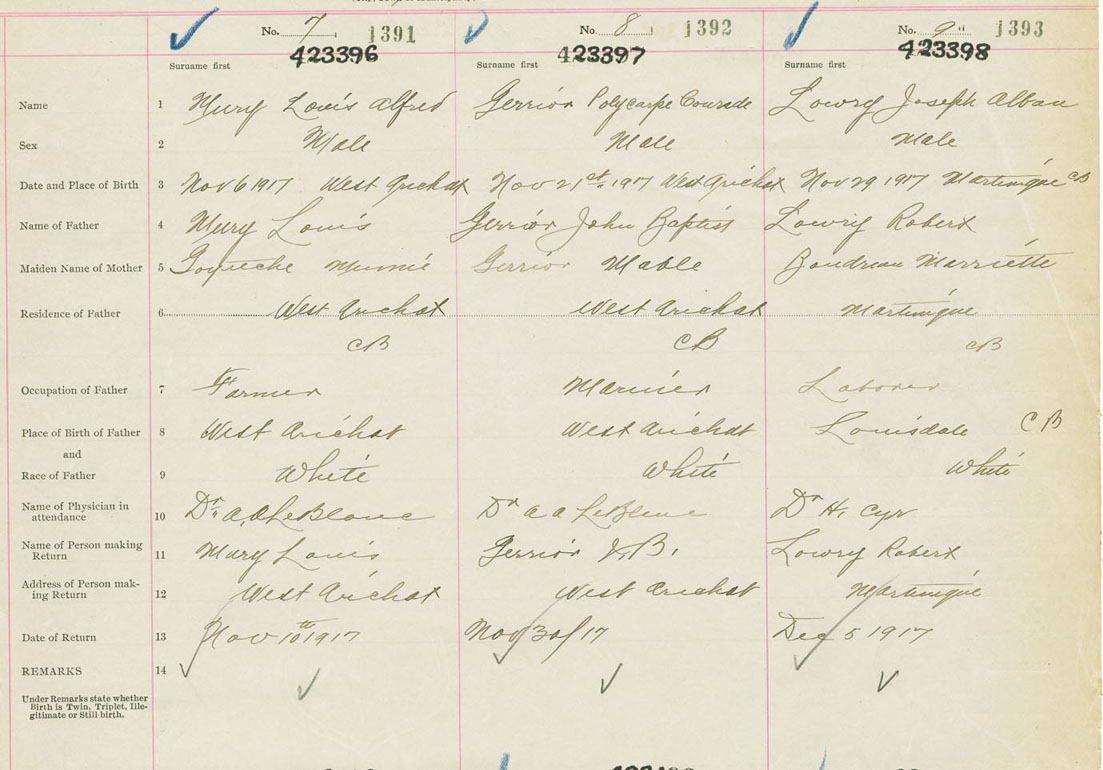 No. 7 1391 No. 8 1392 No. 9 1393
423396 423397 423398
Surname first Surname first Surname first
Name 1 Mury Louis Alfred Gerrior Polycarpe Conrade Lowry Joseph Alban
Sex 2 Male Male Male
Date and Place of Birth 3 Nov 6 1917 West Arichat Nov 21st 1917 West Arichat Nov 29 1917 Martinique CB
Name of Father 4 Mury Louis Gerrior John Baptist Lowry Robert
Maiden Name of Mother 5 Minnie Gerrior Mable Boudreau Marriette
Residence of Father 6 West Arichat West Arichat Martinique
CB CB CB
Occupation of Father 7 Farmer Mariner Laborer
Place of Birth of Father 8 West Arichat West Arichat Louisdale CB
and
Race of Father 9 White White White
Name of Physician in
attendance 10 Dr. A. A LeBlanc Dr A A LeBlanc Dr H. Cyr
Name of Person making
Return 11 Mury Louis Gerrior J. B. Lowry Robert
Address of Person mak-
ing Return 12 West Arichat West Arichat Martinique
Date of Return 13 Nov 10th 1917 Nov 30/17 Dec 5 1917
REMARKS 14
Under Remarks state whether
Birth is Twin, Triplet, Ille-
gitimate or Still birth.